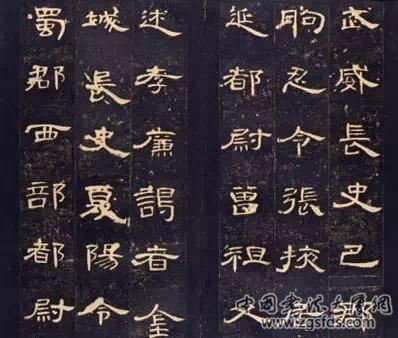 武威長史巴郡
朐忍令張掖居
延都尉曾祖父
述孝廉謁者金
城長史夏陽令
蜀郡西部都尉
中國書法大網
www.zgsfds.com